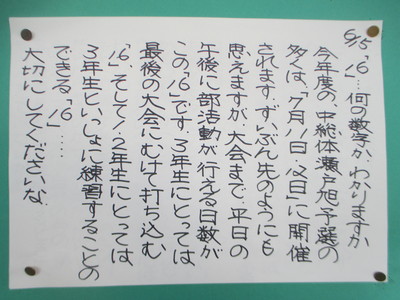 6/15
「16」…何の数字か、わかりますか
今年度の中総体瀬戸旭予選の
多くは、「7月11日・12日」に開催
されます。ずいぶん先のようにも
思えますが、大会まで、平日の
午後に部活動が行える日数が
この「16」です。3年生にとっては
最後の大会にむけて打ち込む
「16」、そして1・2年生にとっては
3年生といっしょに練習することの
できる「16」……
大切にしてくださいな。